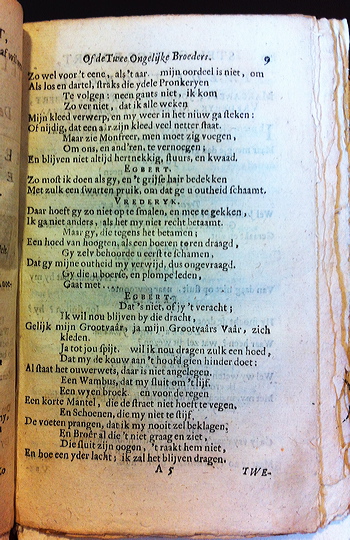 Of de Twee Ongelijke Broeders. 9
Zo wel voor 't eene, als 't aar. mijn oordeel is niet, om
Als los en dartel, straks die ydele Pronkeryen
Te volgen: neen gants niet, ik kom
Zo ver niet, dat ik alle weken
Mijn kleed verwerp, en my weer in het niuw ga steken:
Of nijdig, dat een a'r zijn kleed veel netter staat.
Maar zie Monfreer, men moet zig voegen,
Om ons, en and'ren, te vernoegen;
En blijven niet altijd hertnekkig, stuurs, en kwaad.
EGBERT.
Zo most ik doen als gy, en 't grijse hair bedekken
Met zulk een swarten pruik, om dat ge u outheid schaamt.
VREDERYK.
Daar hoeft gy zo niet op te smalen, en mee te gekken,
Ik ga niet anders, als het my niet recht betaamt.
Maar gy, die tegens het betamen;
Een hoed van hoogten, als een boeren toren draagd,
Gy zelv behoorde u eerst te schamen,
Dat gy mijne outheid my verwijd, dus ongevraagd.
Gy die u boerse, en plompe leden,
Gaat met...
EGBERT.
Dat 's niet, of jy 't veracht;
Ik wil nou blijven by die dracht,
Gelijk mijn Grootvaâr, ja mijn Grootvaârs Vaâr, zich
kleden.
Ja tot jou spijt. wil ik nou dragen zulk een hoed,
Dat my de kouw aan 't hoofd gien hinder doet:
Al staat het ouwerwets, daar is niet angelegen.
Een Wambus, dat my sluit om 't lijf.
Een wyen broek. en voor de regen
Een korte Mantel, die de straet niet hoeft te vegen,
En Schoenen, die my niet te stijf,
De voeten prangen, dat ik my nooit zel beklagen;
En Broêr al die 't niet graag en ziet,
Die sluit zijn oogen, 't raakt hem niet,
En hoe een yder lacht; ik zal het blijven dragen.
A 5 TWE-